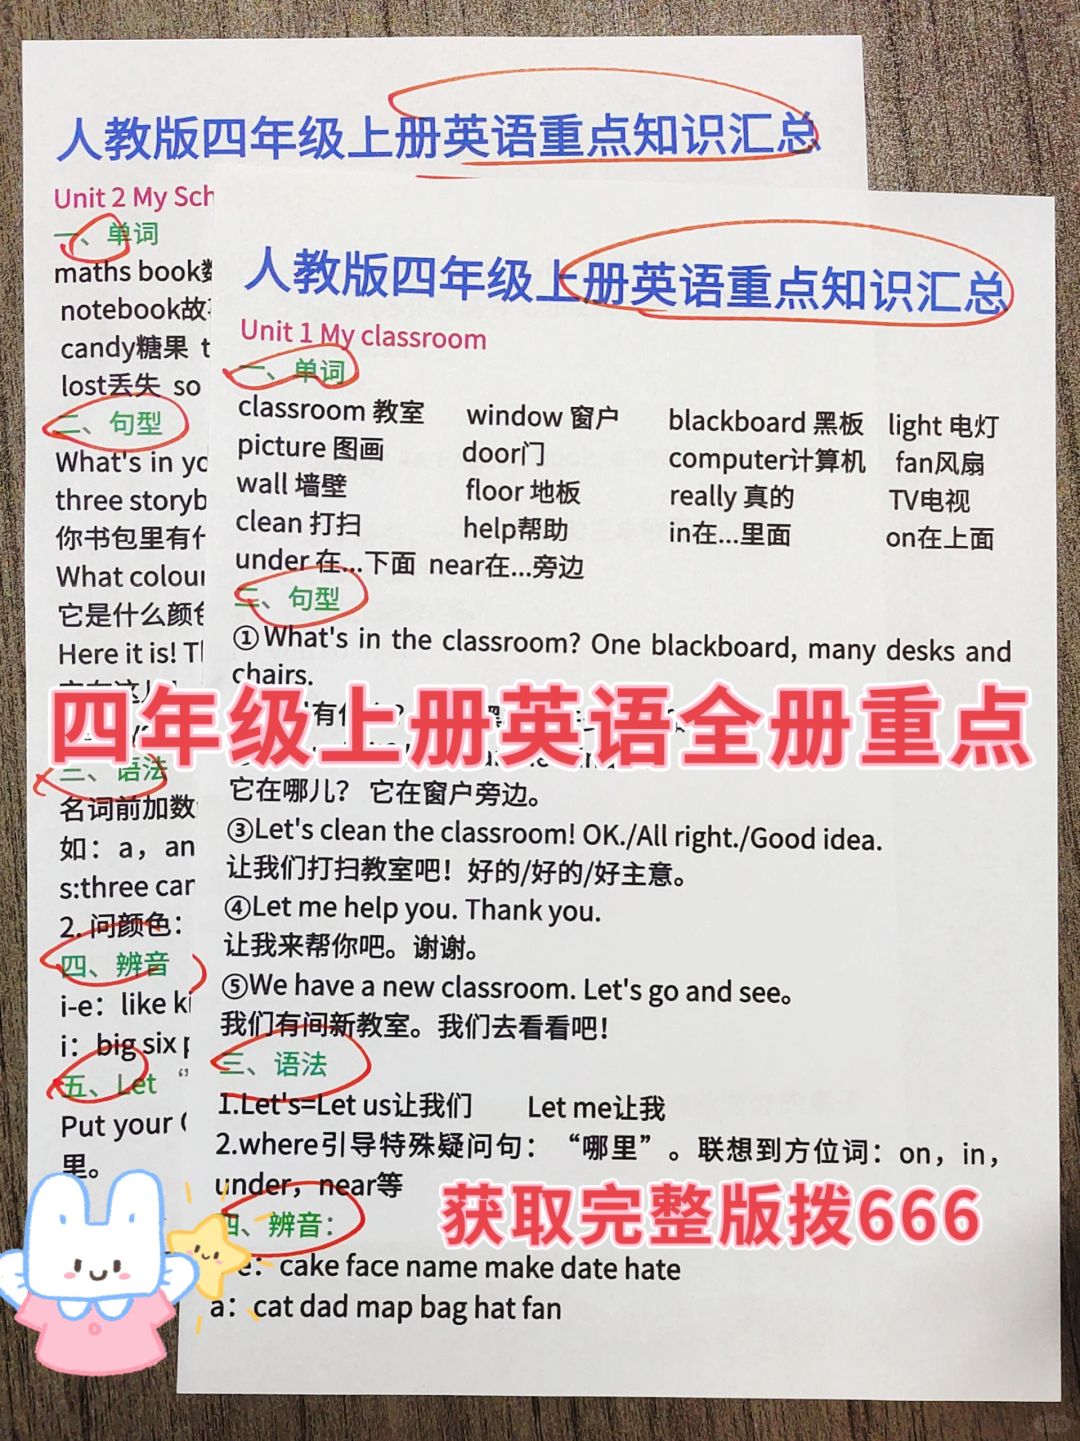 人教版四年级上册英语重点知识汇总
Unit 2 My Sch
一、单词
maths book数
notebook故
candy糖果 t
lost丢失 so
二、句型
What's in yo
three storyb
你书包里有什
What colour
它是什么颜色
Here it is! Th
三、语法
名词前加数
如：a，an
s:three can
2. 问颜色：
四、辨音
i-e：like ki
i：big six p
五、Let
Put your
里。
人教版四年级上册英语重点知识汇总
Unit 1 My classroom
一、单词
classroom 教室 window 窗户 blackboard 黑板 light 电灯
picture 图画 door门 computer计算机 fan风扇
wall 墙壁 floor 地板 really 真的 TV电视
clean 打扫 help帮助 in在...里面 on在上面
under 在...下面 near在...旁边
二、句型
①What's in the classroom? One blackboard, many desks and
chairs.
四年级上册英语全册重点
它在哪儿？ 它在窗户旁边。
③Let's clean the classroom! OK./All right./Good idea.
让我们打扫教室吧！好的/好的/好主意。
④Let me help you. Thank you.
让我来帮你吧。谢谢。
⑤We have a new classroom. Let's go and see。
我们有间新教室。我们去看看吧！
三、语法
1.Let's=Let us让我们 Let me让我
2.where引导特殊疑问句：“哪里”。联想到方位词：on，in，
under，near等
获取完整版拨666
四、辨音：
e：cake face name make date hate
a：cat dad map bag hat fan